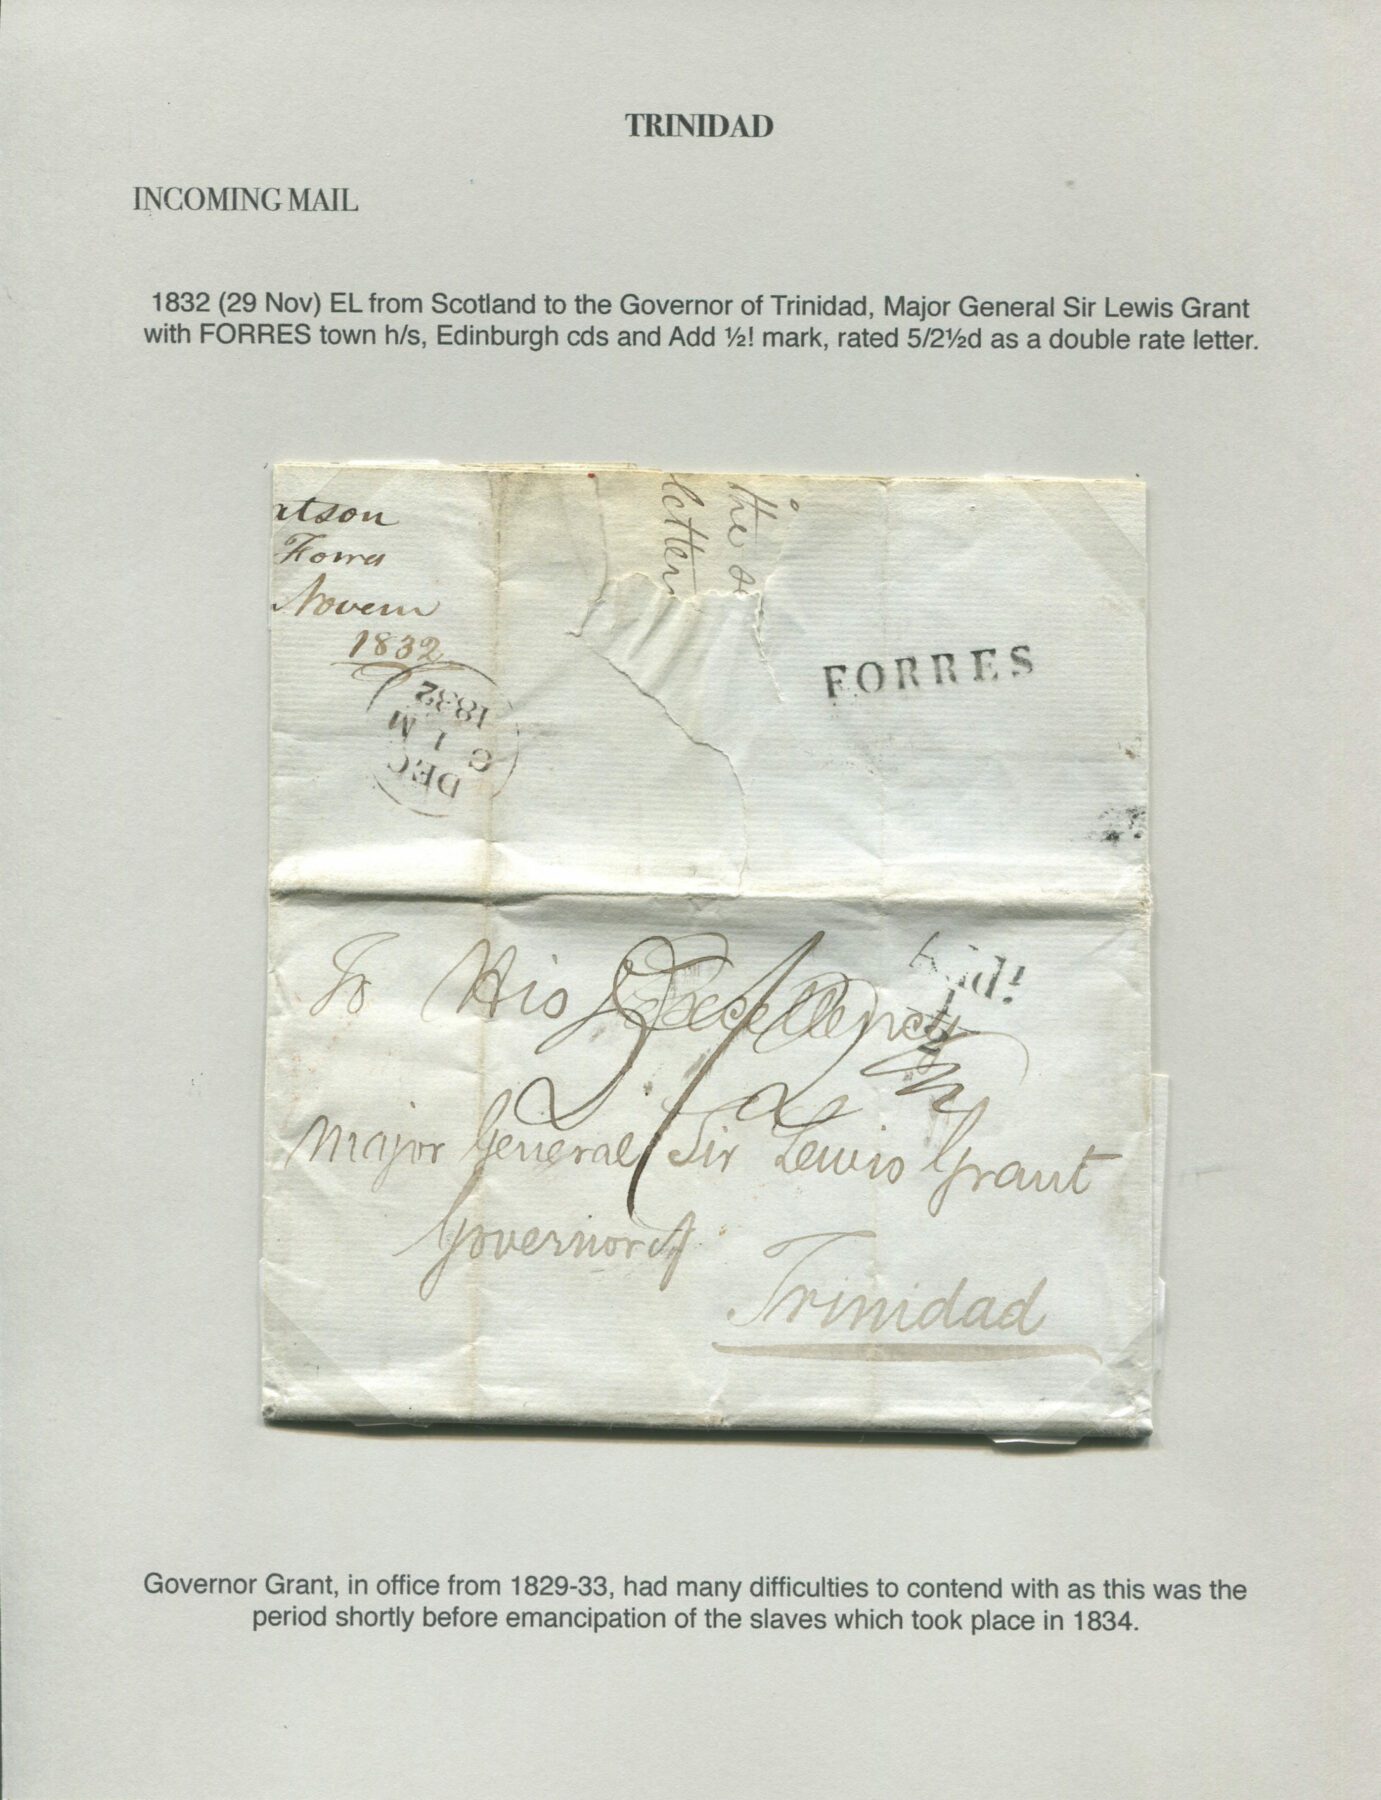 TRINIDAD
INCOMING MAIL
1832 (29 Nov) EL from Scotland to the Governor of Trinidad, Major General Sir Lewis Grant
with FORRES town h/s, Edinburgh cds and Add ½! mark, rated 5/2½d as a double rate letter.
atson
Forres
Novem
1832
DEC
C 1 M
1832
letter
the
FORRES
To His Excellency
Major General Sir Lewis Grant
Governor of
Trinidad
Governor Grant, in office from 1829-33, had many difficulties to contend with as this was the
period shortly before emancipation of the slaves which took place in 1834.